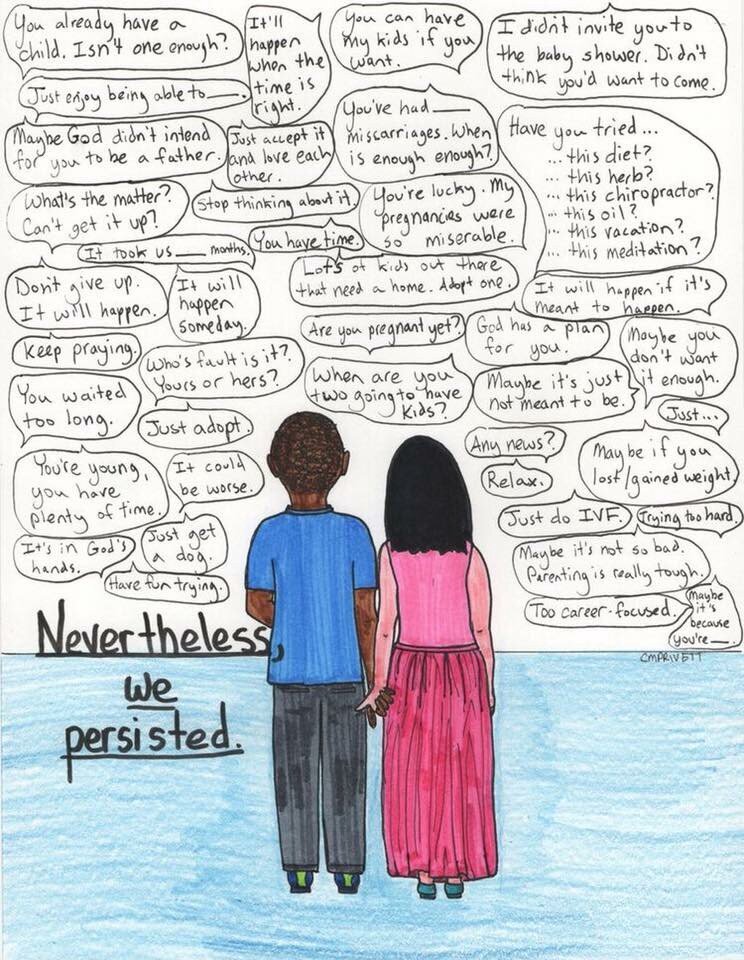 You already have a
child. Isn't one enough?
It'll
happen
when the
time is
right.
You can have
my kids if you
want.
I didn't invite you to
the baby shower. Didn't
think you'd want to come.
Just enjoy being able to____.
Maybe God didn't intend
for you to be a father.
Just accept it
and love each
other.
You've had ____
miscarriages. When
is enough enough?
Have you tried...
... this diet?
... this herb?
... this chiropractor?
... this oil?
... this vacation?
... this meditation?
What's the matter?
Can't get it up?
Stop thinking about it.
You're lucky. My
pregnancies were
so miserable.
It took us ____ months.
You have time.
Lots of kids out there
that need a home. Adopt one.
Don't give up.
It will happen.
It will
happen
someday.
It will happen if it's
meant to happen.
Are you pregnant yet?
God has a plan
for you.
Maybe you
don't want
it enough.
Keep praying.
Who's fault is it?
Yours or hers?
When are you
two going to have
kids?
Maybe it's just
not meant to be.
You waited
too long.
Just adopt.
Just...
Any news?
Maybe if you
lost/gained weight.
You're young,
you have
plenty of time.
It could
be worse.
Relax.
Just do IVF.
Trying too hard.
It's in God's
hands.
Just get
a dog.
Maybe it's not so bad.
Parenting is really tough.
Have fun trying.
Too career-focused.
Maybe
it's
because
you're __
CMPRIVETT
Nevertheless,
we
persisted.